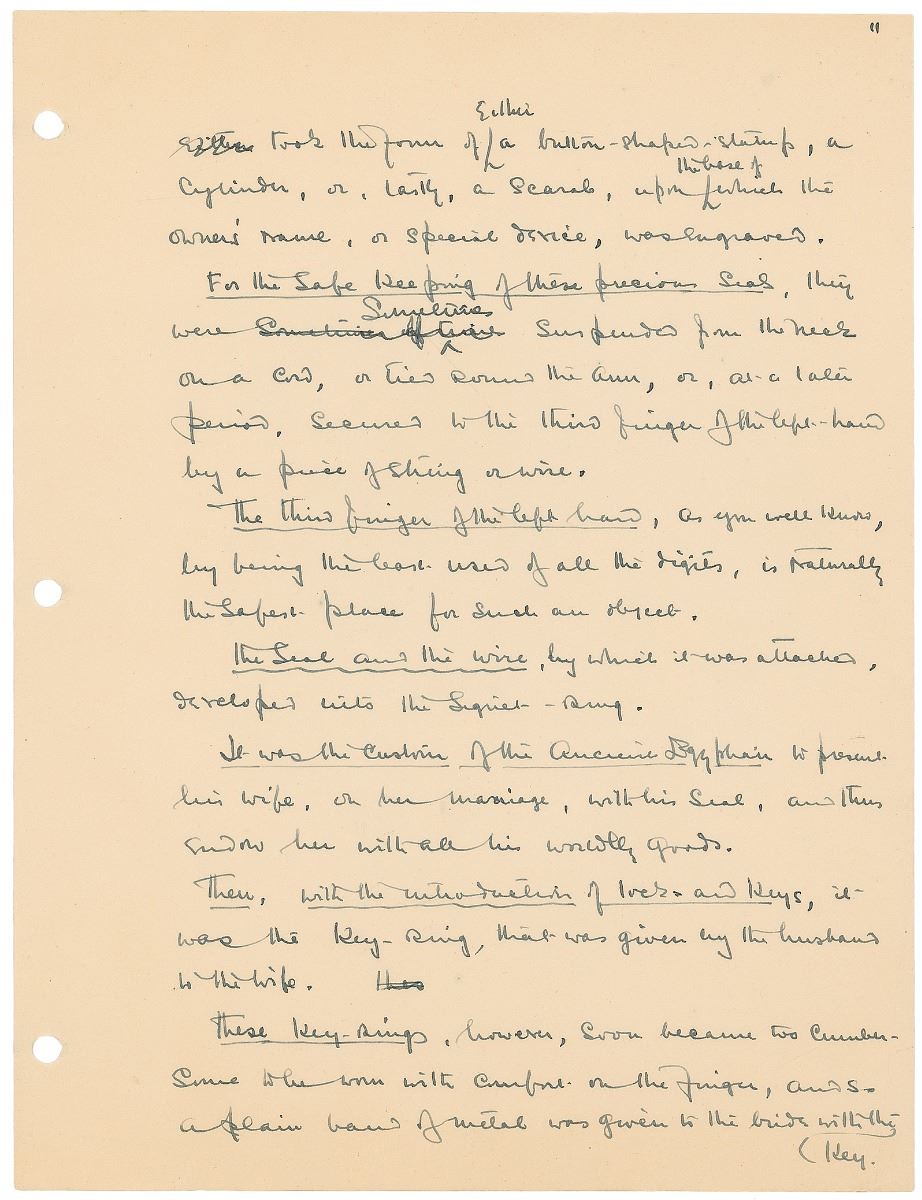 "
Either
either took the form of a button-shaped-stamp, a
the base of
Cylinder, or, lastly, a Scarab, upon which the
owner's name, or special device, was engraved.
For the Safe Keeping of these precious Seals, they
Sometimes
were Sometimes Suspended from the neck
on a Cord, or tied round the arm, or, at a later
period, Secured to the third finger of the left-hand
by a piece of string or wire.
The third finger of the left hand, as you well know,
by being the least used of all the digits, is naturally
the Safest place for such an object.
the Seal and the wire, by which it was attached,
developed into the Signet-ring.
It was the Custom of the Ancient Egyptian to present
his wife, on her marriage, with his Seal, and thus
endow her with all his worldly goods.
Then, with the introduction of locks and Keys, it
was the Key-ring, that was given by the husband
to the wife. This
These Key-rings, however, Soon became too Cumber-
Some to be worn with Comfort on the finger, and so
a plain band of metal was given to the bride with the
(Key.